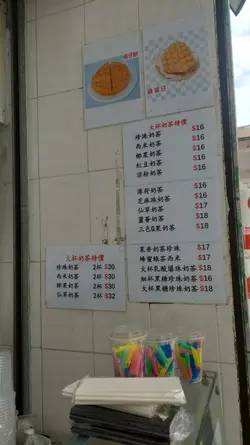 雞仔餅
雞蛋仔
大杯奶茶特價
珍珠奶茶 $16
西米奶茶 $16
椰果奶茶 $16
紅豆奶茶 $16
涼粉奶茶 $16
薄荷奶茶 $16
芝麻珠奶茶 $16
仙草奶茶 $17
蘆薈奶茶 $18
三色Q果奶茶 $18
果香奶茶珍珠 $17
蜂蜜綠茶西米 $17
大杯乳酸爆珠奶茶 $18
細杯黑糖珍珠奶茶 $16
大杯黑糖珍珠奶茶 $18
大杯奶茶特價
珍珠奶茶 2杯 $30
西米奶茶 2杯 $30
椰果奶茶 2杯 $30
仙草奶茶 2杯 $32